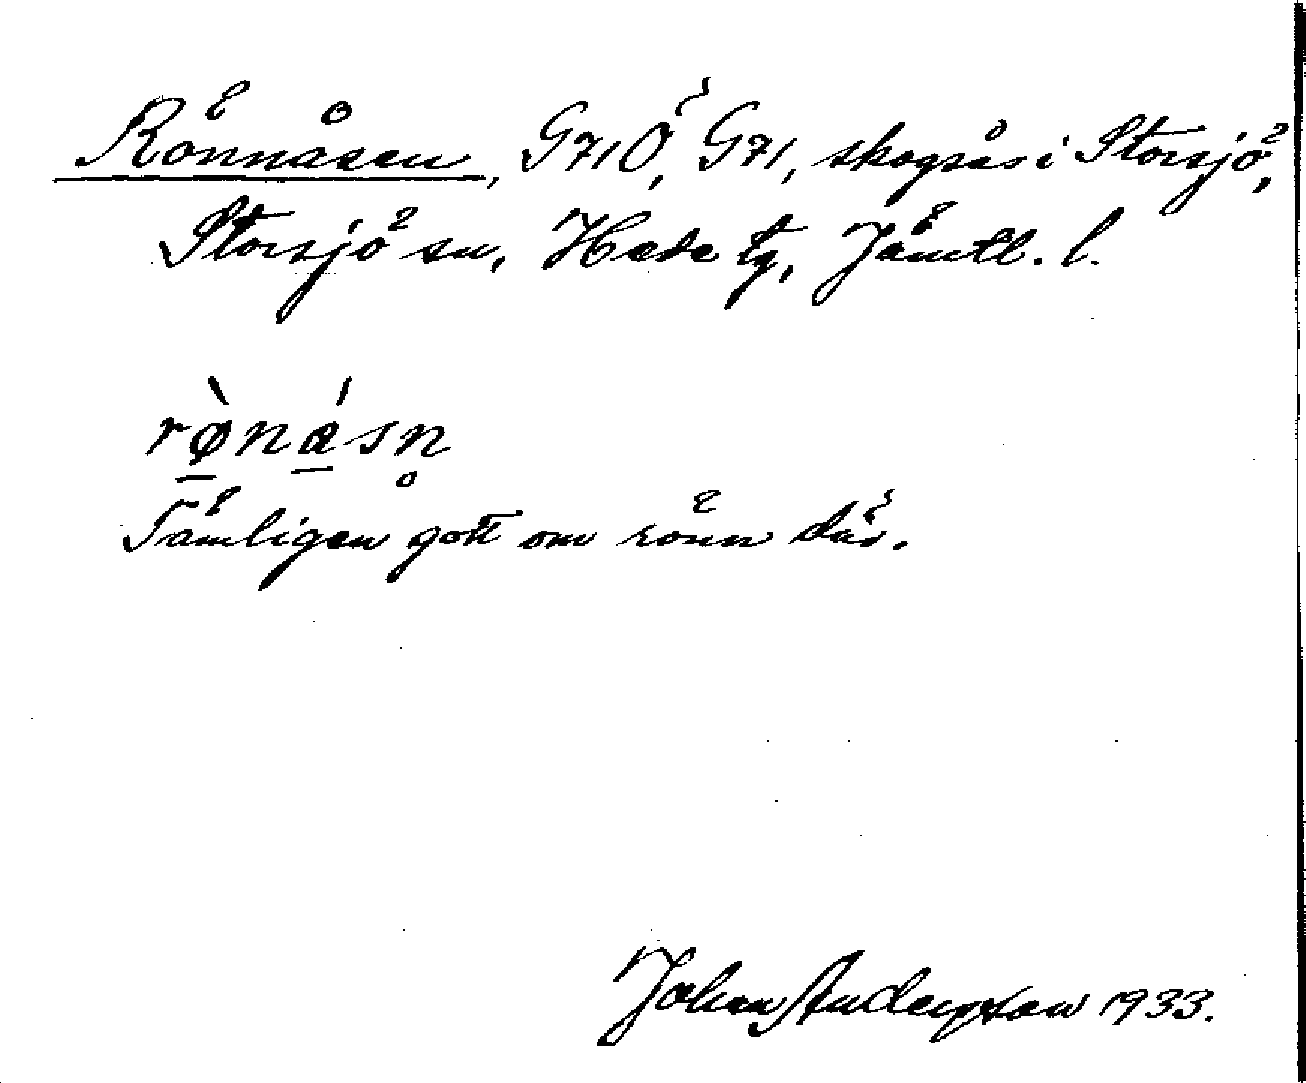 Rönnåsen, G71Ö, G71, skogsås i Storsjö,
Storsjö sn, Hede tg, Jämtl. l.
rø̱̀ná̱sn̥
Tämligen gott om rönn där.
Johan Andersson 1933.